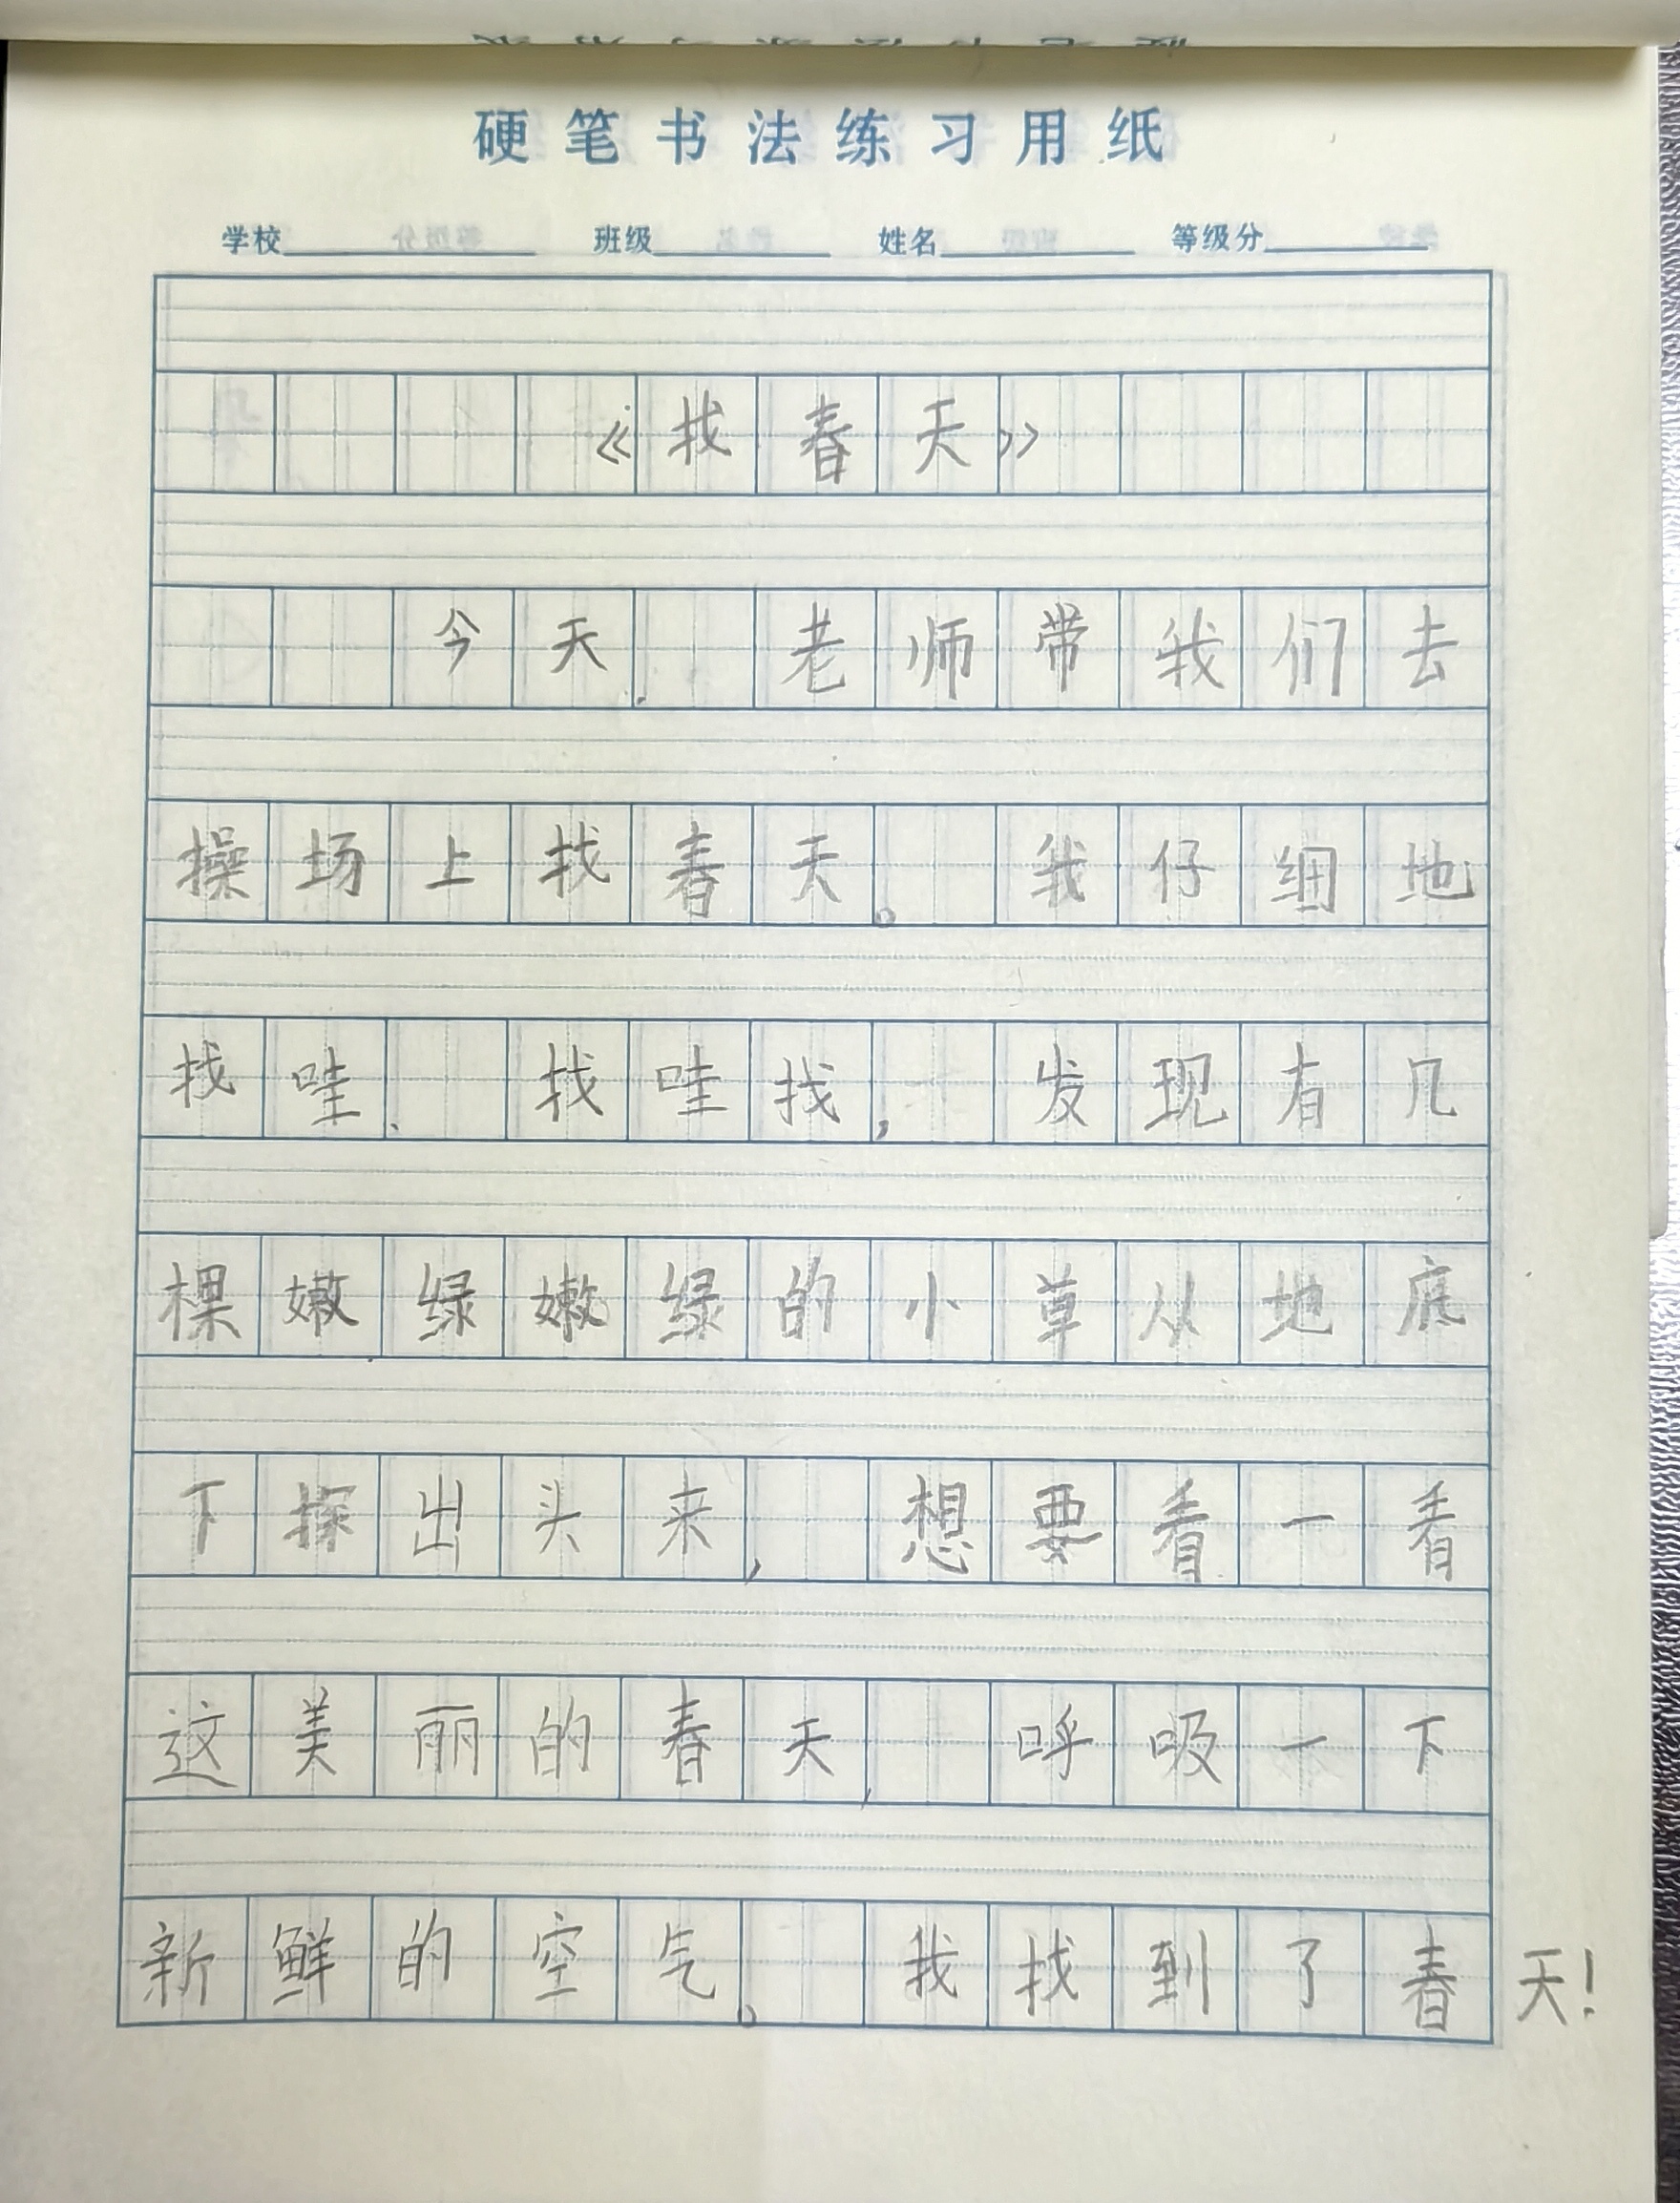 硬笔书法练习用纸
学校 班级 姓名 等级分
《找春天》
今天,老师带我们去
操场上找春天。我仔细地
找哇,找哇找,发现有几
棵嫩绿嫩绿的小草从地底
下探出头来,想要看一看
这美丽的春天,呼吸一下
新鲜的空气。我找到了春天!